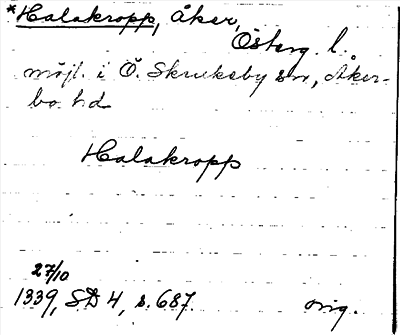 *Halakropp, åker,
Österg. l.
möjl. i Ö. Skrukeby sn, Åker-
bo hd
Halakropp
27/10
1339, SD 4, s. 687. orig.